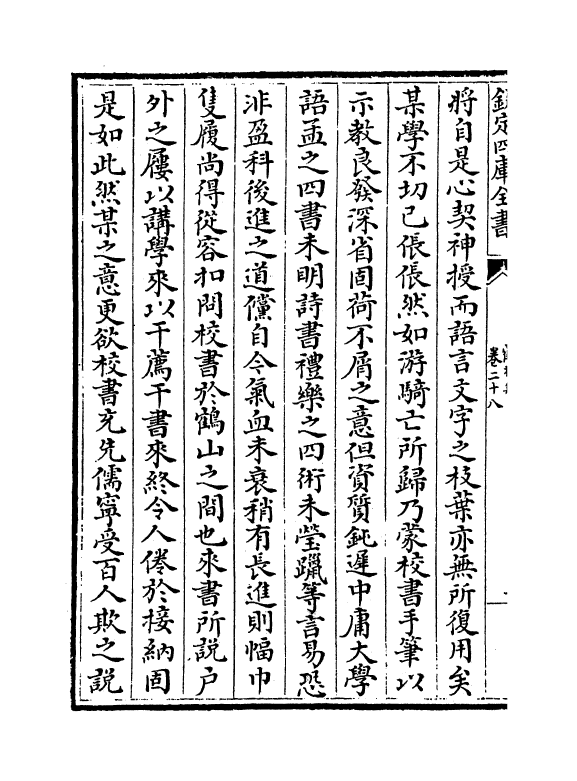 欽定四庫全書
卷二十八
將自是心契神授而語言文字之枝葉亦無所復用矣
某學不切己倀倀然如游騎亡所歸乃蒙校書手筆以
示教良發深省固荷不屑之意但資質鈍遲中庸大學
語孟之四書未明詩書禮樂之四術未瑩躐等言易恐
非盈科後進之道儻自今氣血未衰稍有長進則幅巾
隻履尚得從容扣問校書於鶴山之間也來書所説户
外之屨以講學來以干薦干書來終令人倦於接納固
是如此然某之意更欲校書充先儒寧受百人欺之説